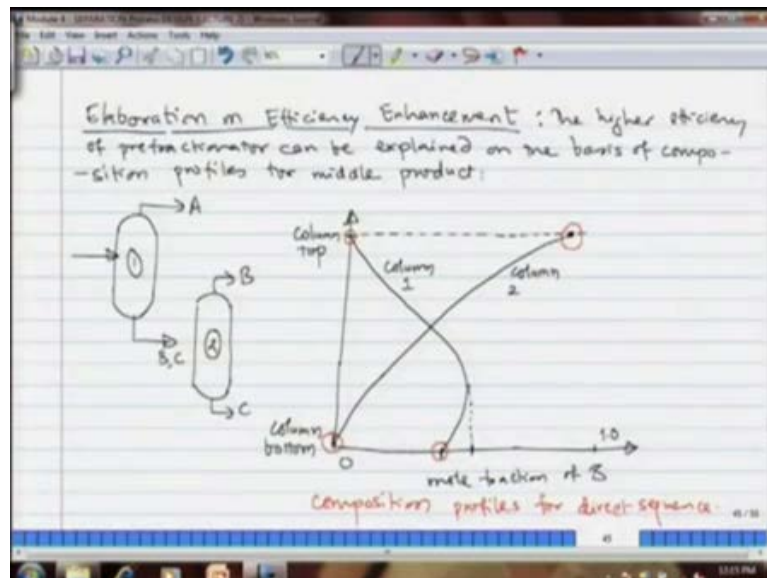 Module 4 - SEPARATION Process DESIGN (LECTURE 2) - Windows Journal
File Edit View Insert Actions Tools Help
Elaboration on Efficiency Enhancement : The higher efficiency
of prefractionator can be explained on the basis of compo-
-sition profiles for middle product:
A
1
B, C
B
2
C
column top
column 1
column 2
column bottom
0
1.0
mole fraction of B
composition profiles for direct sequence.
45
12:15 PM